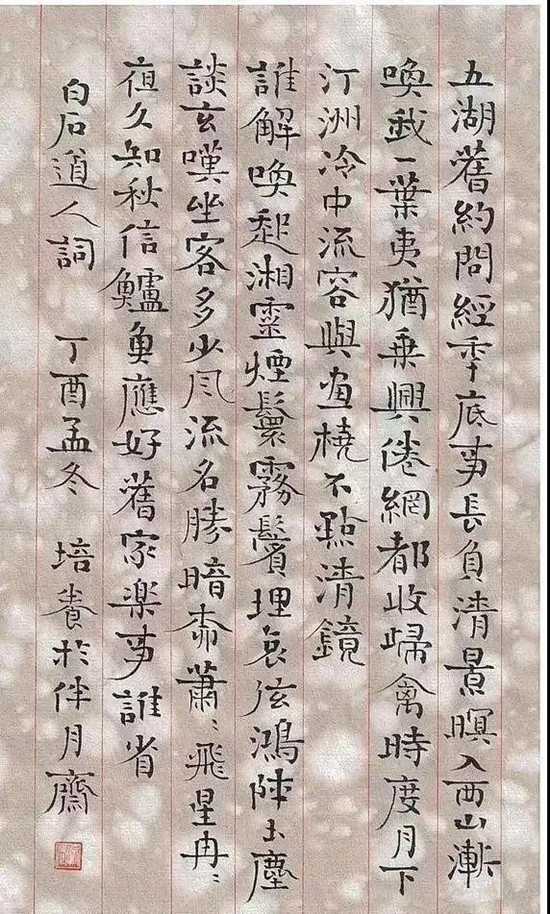 五湖舊約問經年底事長負清景暝入西山漸
喚我一葉夷猶乘興倦網都收歸禽時度月下
汀洲冷中流容與畫橈不點清鏡
誰解喚起湘靈煙鬟霧鬢理哀弦鴻陣玉麈
談玄嘆坐客多少風流名勝暗柳蕭〻飛星冉〻
夜久知秋信鱸魚應好舊家楽事誰省
白石道人詞 丁酉孟冬 培養於伴月齋